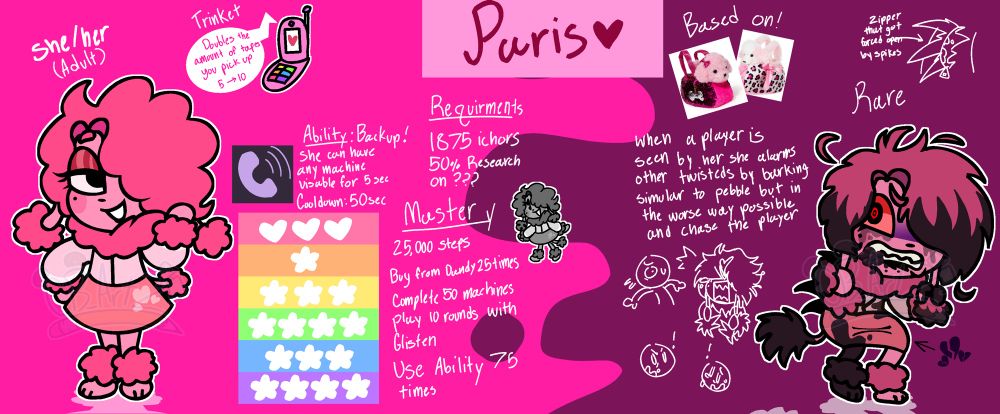 she/her
(Adult)
Trinket
Doubles the
amount of tapes
you pick up
5 → 10
Paris
Ability: Backup!
she can have
any machine
visable for 5 sec
Cooldown: 50sec
Requirments
1875 ichors
50% Research
on ???
Mastery
25,000 steps
Buy from Dandy 25 times
Complete 50 machines
play 10 rounds with
Glisten
Use Ability 75
times
Based on!
zipper
that got
forced open
by spikes
Rare
when a player is
seen by her she alarms
other twisteds by barking
simular to pebble but in
the worse way possible
and chase the player